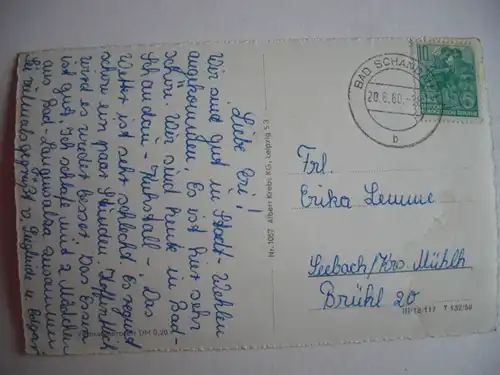 Liebe Evi!
Wir sind gut in Stadt-Wehlen
angekommen. Es ist hier sehr
schön. Wir sind heute in Bad-
Schandau - Kuhstall -. Das
Wetter ist sehr schlecht. Es regnet
schon ein paar Stunden. Hoffentlich
wird es wieder besser. Das Essen
ist gut. Ich schlafe mit 2 Mädchen
aus Bad-Langensalza zusammen.
Sei vielmals gegrüßt v.
Nr. 1057 Albert Krebs KG., Leipzig S 3
BAD SCHANDAU
20.6.60.
b
10
Frl.
Erika Lemme
Seebach/Krs. Mühlh
Brühl 20
III/18/117 T 132/58
DM 0,20